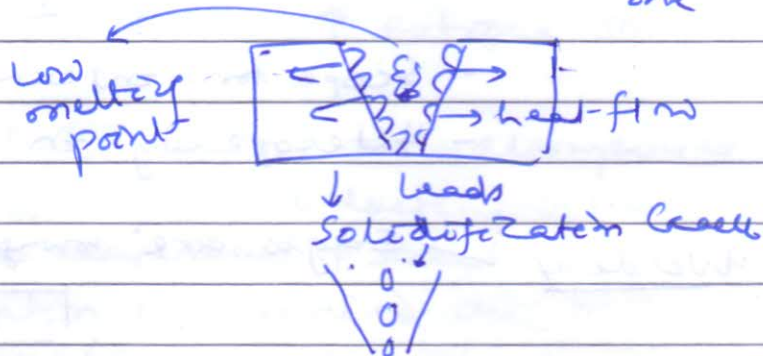 one
Low
melting
point
heat-flow
Leads
Solidification Crack